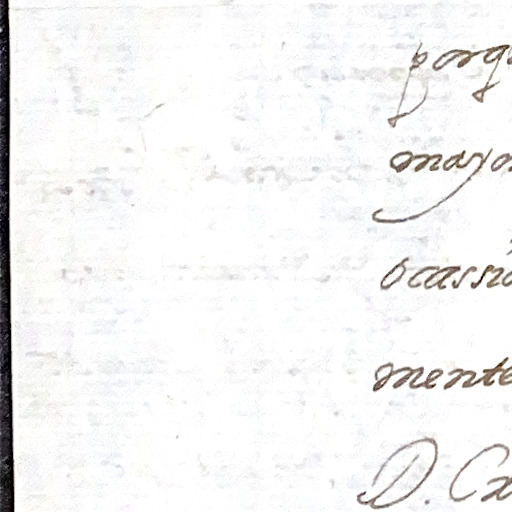 porq
mayo
ocassio
mente
D. Ca